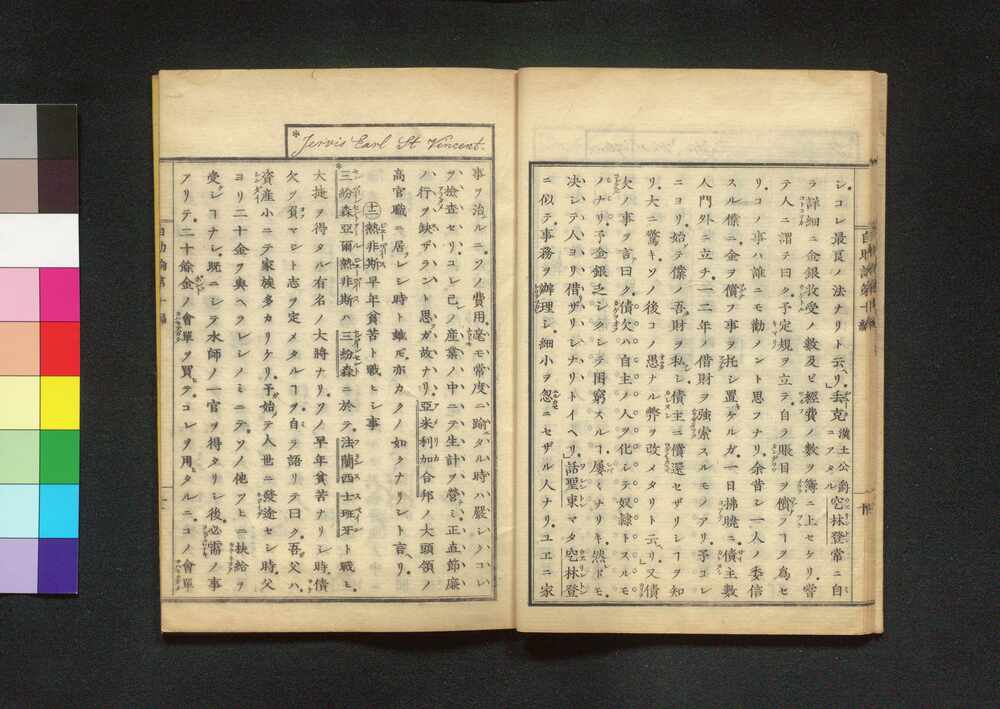 シ。コレ最良ノ法ナリト云リ。」丢克漢土公爵ニアタル空林登常ニ自
ラ詳細ニ金銀收受ノ數及ビ經費ノ數ヲ簿ニ上セケリ。嘗
テ人ニ謂テ曰ク。予定規ヲ立テ。自ラ賬目ヲ償フヿヲ為セ
リ。コノ事ハ誰ニモ勸メント思フナリ。余昔シ一人ノ委信
スル僕ニ金ヲ償フ事ヲ托シ置ケルガ。一日拂曉ニ債主數
人門外ニ立チ。一二年ノ借財ヲ強索スルモノアリ。予コレ
ニヨリ。始テ僕ノ吾財ヲ私シ。債主ニ償還セザリシヿヲ知
リ。大ニ驚キソノ後コノ愚ナル弊ヲ改メタリト云リ。」又債
欠ノ事ヲ言曰ク。債欠ハ自主ノ人ヲ化シテ奴隷トスルモ
ノナリ。予金銀乏シクシテ困窮スルヿ屢ミナリキ。然ドモ
决シテ人ヨリ借ザリシナリトイヘリ。」話聖東マタ空林登
ニ似テ。事務ヲ辦理シ。細小ヲ忽ニセザル人ナリ。ユヱニ家
*Jervis Earl St Vincent.
事ヲ治ルニ。ソノ費用毫モ常度ニ踰タル時ハ嚴シクコレ
ヲ撿查セリ。コレ己ノ產業ノ中ニテ生計ヲ營ミ正直節廉
ノ行ヲ缺ザラント思ガ故ナリ。亞米利加合邦ノ大頭領ノ
高官職ニ居レシ時ト雖𪜈亦カクノ如クナリシト言リ。
(十二)熱非斯早年貧苦ト戰ヒシ事
*三紛森亞爾熱非斯ハ三紛森ニ於テ。法蘭西士班牙ト戰ヒ。
大捷ヲ得タル有名ノ大將ナリ。ソノ早年貧苦ナリシ時。債
欠ヲ負マジト志ヲ定メタルヿヲ自ラ語リテ曰ク。吾父ハ。
資產小ニテ家族多カリケリ。予始テ人世ニ發途セシ時。父
ヨリ二十金ヲ與ヘラレシノミニテ。ソノ他フヒニ扶給ヲ
受シヿナシ。既ニシテ水師ノ一官ヲ得タリシ後。必需ノ事
アリテ。二十餘金ノ會單ヲ買テ。コレヲ用タルニ。コノ會單